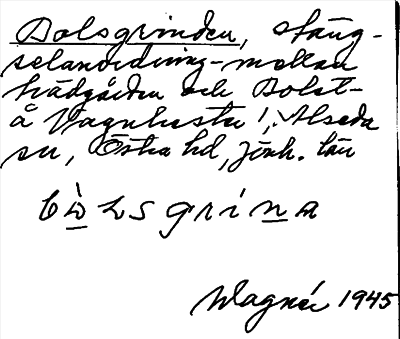 Bolsgrinden, stäng-
selanordning mellan
trädgården och Bolst-
å Vagnhester!, Alseda
sn, Östra hd, Jönk. län
bòlsgrína
Wagnér 1945